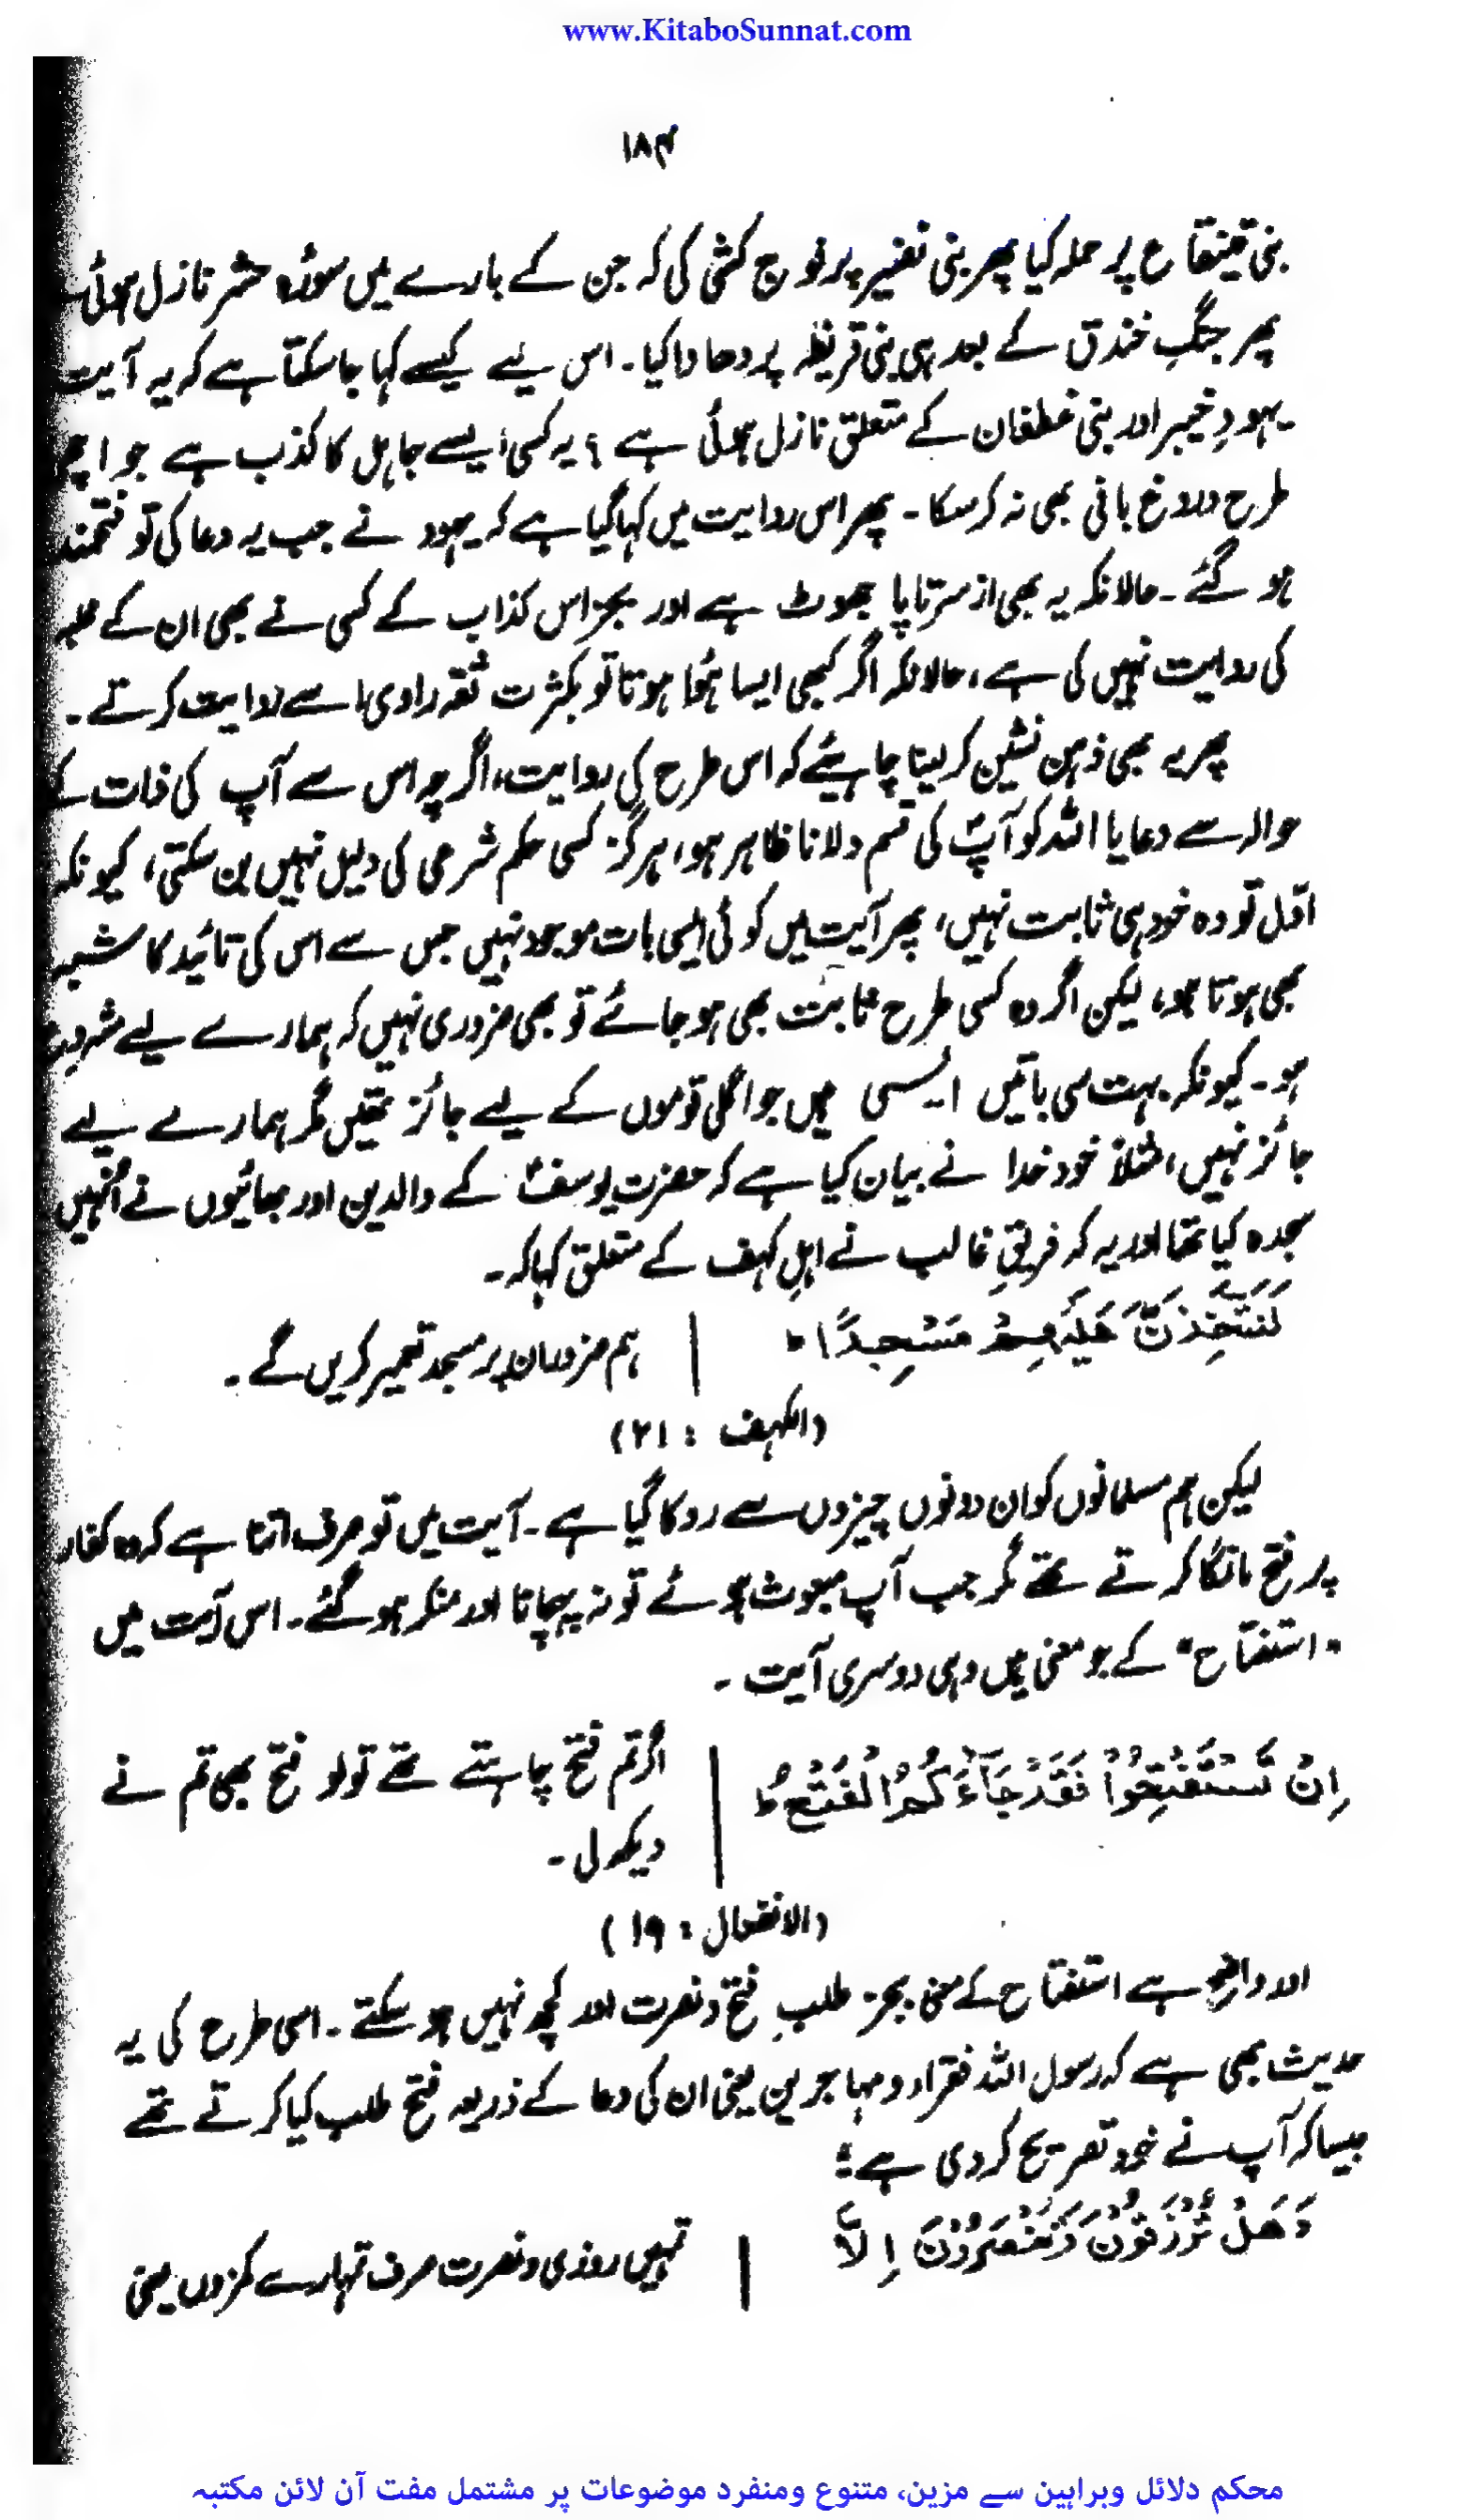 www.KitaboSunnat.com
۱۸۴
بنی قینقاع پر حملہ کیا پھر بنی نضیر پر فوج کشی کی کہ جن کے بارے میں سورۂ حشر نازل ہوئی۔
پھر جنگِ خندق کے بعد ہی بنی قریظہ پر دھاوا کیا۔ اس لیے کیسے کہا جا سکتا ہے کہ یہ آیت
یہودِ خیبر اور بنی غطفان کے متعلق نازل ہوئی ہے؟ یہ کسی ایسے جاہل کا کذب ہے جو اچھی
طرح دروغ بافی بھی نہ کر سکا۔ پھر اس روایت میں کہا گیا ہے کہ یہود نے جب یہ دعا کی تو فتحمند
ہو گئے۔ حالانکہ یہ بھی از سر تا پا جھوٹ ہے اور بجز اس کذاب کے کسی نے بھی ان کے غلبہ
کی روایت نہیں کی ہے، حالانکہ اگر کبھی ایسا ہُوا ہوتا تو بکثرت ثقہ راوی اسے روایت کرتے۔
پھر یہ بھی ذہن نشین کر لینا چاہیئے کہ اس طرح کی روایت، اگرچہ اس سے آپ کی ذات کے
حوالہ سے دعا یا اللہ کو آپؐ کی قسم دلانا ظاہر ہو، ہرگز کسی حکم شرعی کی دلیل نہیں بن سکتی، کیونکہ
اوّل تو وہ خود ہی ثابت نہیں، پھر آیت میں کوئی ایسی بات موجود نہیں جس سے اس کی تائید کا شبہ
بھی ہوتا ہو، لیکن اگر وہ کسی طرح ثابت بھی ہو جائے تو بھی ضروری نہیں کہ ہمارے لیے مشروع
ہو۔ کیونکہ بہت سی باتیں ایسی ہیں جو اگلی قوموں کے لیے جائز تھیں مگر ہمارے لیے
جائز نہیں، مثلاً خود خدا نے بیان کیا ہے کہ حضرت یوسفؑ کے والدین اور بھائیوں نے اُنہیں
سجدہ کیا تھا اور یہ کہ فریقِ غالب نے اہلِ کہف کے متعلق کہا کہ۔
لَنَتَّخِذَنَّ عَلَيْهِمْ مَسْجِدًا ط | ہم ضرور ان پر مسجد تعمیر کریں گے۔
(الکہف : ۲۱)
لیکن ہم مسلمانوں کو ان دونوں چیزوں سے روکا گیا ہے۔ آیت میں تو صرف اتنا ہے کہ وہ کفار
پر فتح مانگا کرتے تھے مگر جب آپ مبعوث ہوئے تو نہ پہچانا اور منکر ہو گئے۔ اس آیت میں
"استفتاح" کے جو معنی ہیں وہی دوسری آیت۔
اِنْ تَسْتَفْتِحُوْا فَقَدْ جَآءَكُمُ الْفَتْحُ ط | اگر تم فتح چاہتے تھے تو لو فتح بھی تم نے
دیکھ لی۔
(الانفال : ۱۹)
اور واضح ہے استفتاح کے معنی بجز طلبِ فتح و نصرت اور کچھ نہیں ہو سکتے۔ اسی طرح کی یہ
حدیث بھی ہے کہ رسول اللہ فقراء و مہاجرین یعنی ان کی دعا کے ذریعہ فتح طلب کیا کرتے تھے
جیسا کہ آپ نے خود تصریح کر دی ہے؛
وَهَلْ تُرْزَقُوْنَ وَتُنْصَرُوْنَ اِلَّا | تمہیں روزی و نصرت صرف تمہارے کمزوروں یعنی
محکم دلائل وبراہین سے مزین، متنوع ومنفرد موضوعات پر مشتمل مفت آن لائن مکتبہ